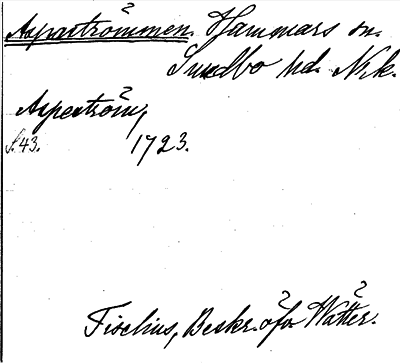 Aspaströmmen. Hammars sn.
Sundbo hd. Nrk.
Aspeström,
s. 43. 1723.
Tiselius, Beskr. öfv Wätter.